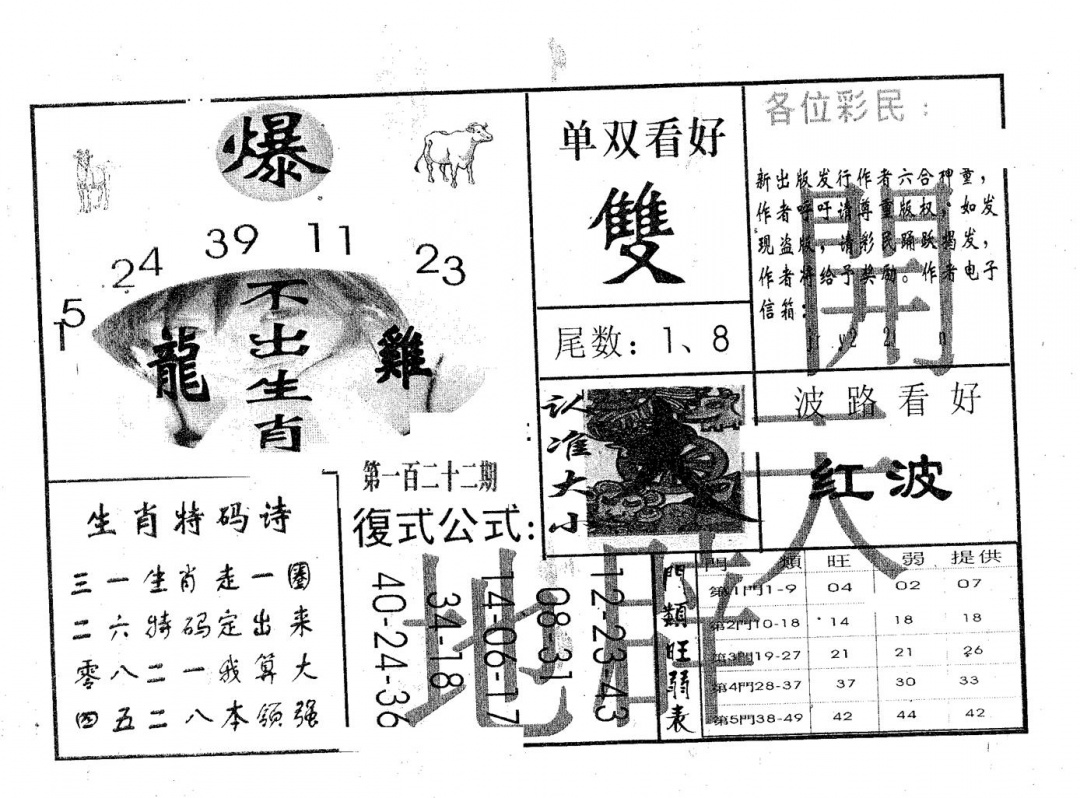 爆
15
24
39
11
23
不出生肖
龍
雞
单双看好
雙
尾数：1、8
各位彩民：
新出版发行作者六合神童，
作者呼吁请尊重版权，如发
现盗版，请彩民踊跃揭发，
作者将给予奖励。作者电子
信箱：
開
认准大小
波路看好
红波
天
第一百二十二期
復式公式：
12-23-43
08-31
14-06-17
34-18
40-24-36
地
生肖特码诗
三一生肖走一圈
二六特码定出来
零八二一我算大
四五二八本领强
門類旺弱表
門類 旺 弱 提供
第1門1-9 04 02 07
第2門10-18 14 18 18
第3門19-27 21 21 26
第4門28-37 37 30 33
第5門38-49 42 44 42